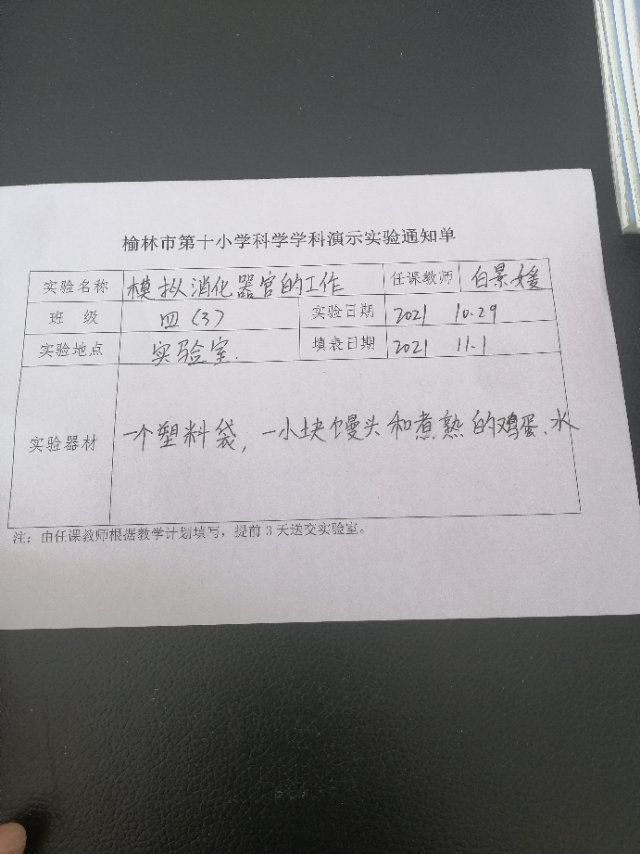 榆林市第十小学科学学科演示实验通知单
实验名称 模拟消化器官的工作 任课教师 白景媛
班 级 四(3) 实验日期 2021 10.29
实验地点 实验室. 填表日期 2021 11.1
实验器材 一个塑料袋,一小块馒头和煮熟的鸡蛋、水
注：由任课教师根据教学计划填写，提前3天送交实验室。